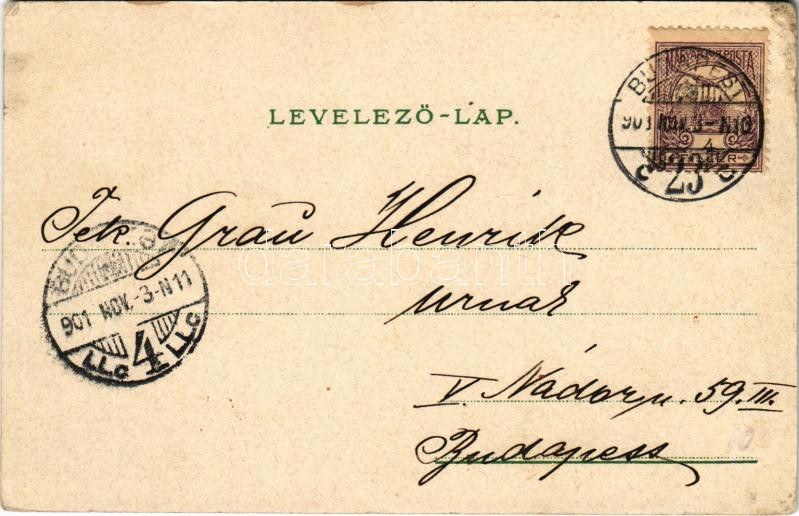 MAGYAR KIR. POSTA
BUDAPEST
901 NOV.-3-N10
c 23 c
LEVELEZŐ-LAP.
Tek. Grau Henrik
urnak
V. Nádor u. 59. III.
Budapest
BUD
901 NOV.-3-N11
LLC 4 LLC
darabanth